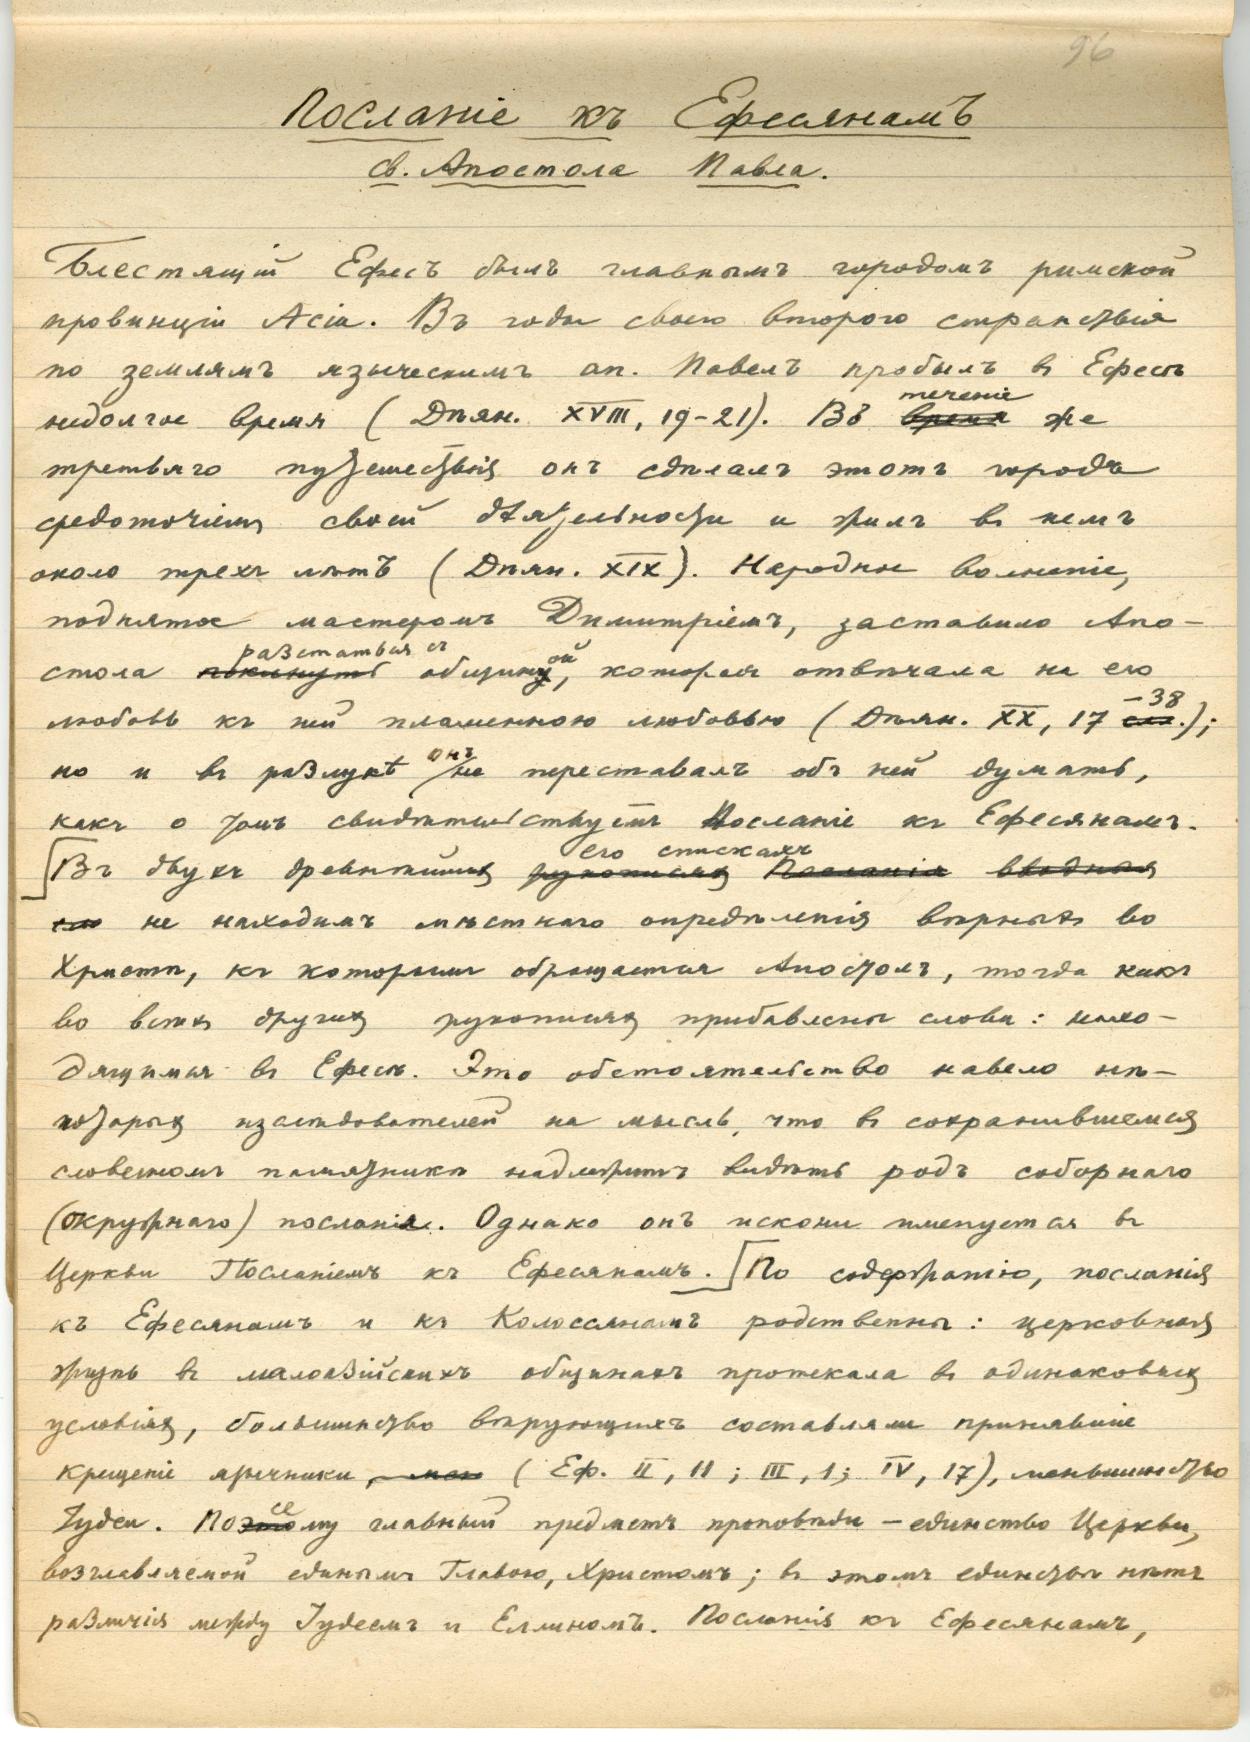 96
Посланіе къ Ефесянамъ
св. Апостола Павла.
Блестящій Ефесъ былъ главнымъ городомъ римской
провинціи Асіи. Въ годы своего второго странствія
по землямъ языческимъ ап. Павелъ пробылъ въ Ефесѣ
недолгое время (Дѣян. XVIII, 19-21). Въ время теченіе же
третьяго путешествія онъ сдѣлалъ этотъ городъ
средоточіемъ своей дѣятельности и жилъ въ немъ
около трехъ лѣтъ (Дѣян. XIX). Народное волненіе,
поднятое мастеромъ Димитріемъ, заставило Апо-
стола покинуть разстаться съ общиной, которая отвѣчала на его
любовь къ ней пламенною любовью (Дѣян. XX, 17 сл. -38);
но и въ разлукѣ онъ не переставалъ объ ней думать,
какъ о томъ свидѣтельствуетъ Посланіе къ Ефесянамъ.
Въ двухъ древнѣйшихъ рукописяхъ его спискахъ Посланія
не находимъ мѣстнаго опредѣленія вѣрныхъ во
Христѣ, къ которымъ обращается Апостолъ, тогда какъ
во всѣхъ другихъ рукописяхъ прибавлены слова: нахо-
дящимся въ Ефесѣ. Это обстоятельство навело нѣ-
которыхъ изслѣдователей на мысль, что въ сохранившемся
словесномъ памятникѣ надлежитъ видѣть родъ соборнаго
(окружнаго) посланія. Однако онъ искони именуется въ
Церкви Посланіемъ къ Ефесянамъ. По содержанію, посланія
къ Ефесянамъ и къ Колоссянамъ родственны: церковная
жизнь въ малоазійскихъ общинахъ протекала въ одинаковыхъ
условіяхъ, большинство вѣрующихъ составляли принявшіе
крещеніе язычники, (Еф. II, 11; III, 1; IV, 17), меньшинство
Іудеи. Посему главный предметъ проповѣди - единство Церкви,
возглавляемой единымъ Главою, Христомъ; въ этомъ единствѣ нѣтъ
различія между Іудеемъ и Еллиномъ. Посланія къ Ефесянамъ,